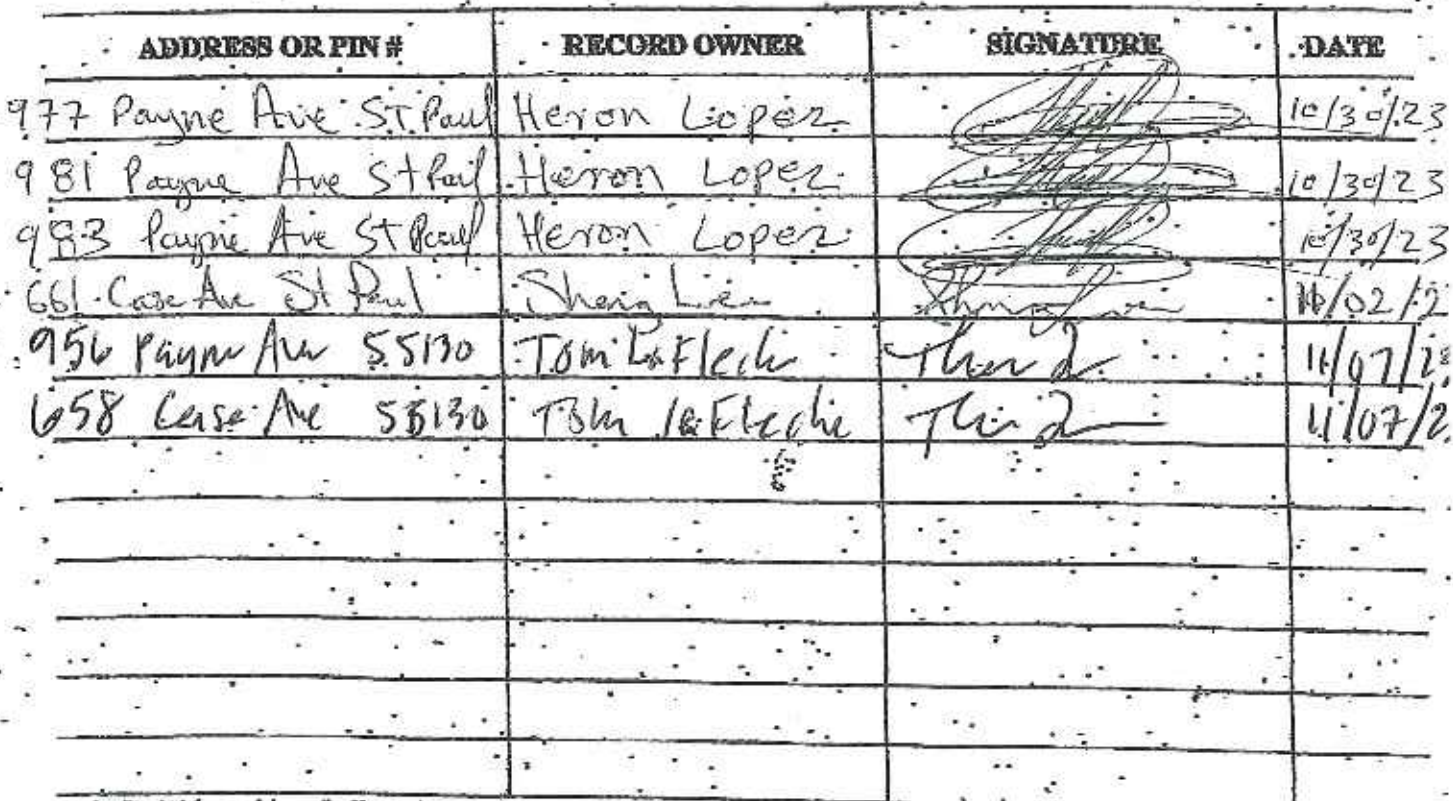 ADDRESS OR PIN # RECORD OWNER SIGNATURE DATE
977 Payne Ave St Paul Heron Lopez 10/30/23
981 Payne Ave St Paul Heron Lopez 10/30/23
993 Payne Ave St Paul Heron Lopez 10/30/23
661 Case Ave St Paul 11/02/2
956 Payne Ave 55130 Tom LaFleche 11/07/2
658 Case Ave 55130 Tom LaFleche 11/07/2